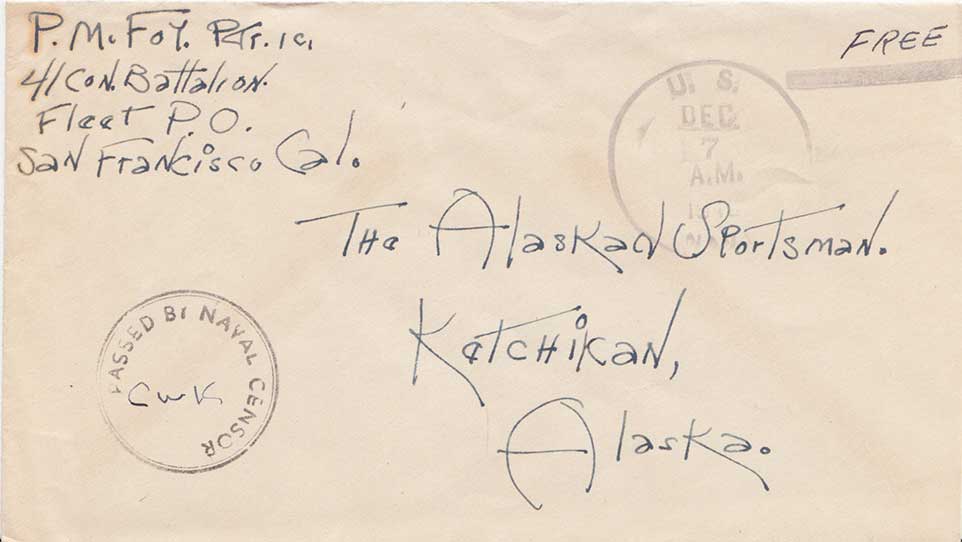 P. M. Foy. Ptr. 1c,
41 Con. Battalion.
Fleet P.O.
San Francisco Cal.
FREE
U. S.
DEC
7
A.M.
The Alaskan Sportsman.
Ketchikan,
Alaska.
PASSED BY NAVAL CENSOR
CWK